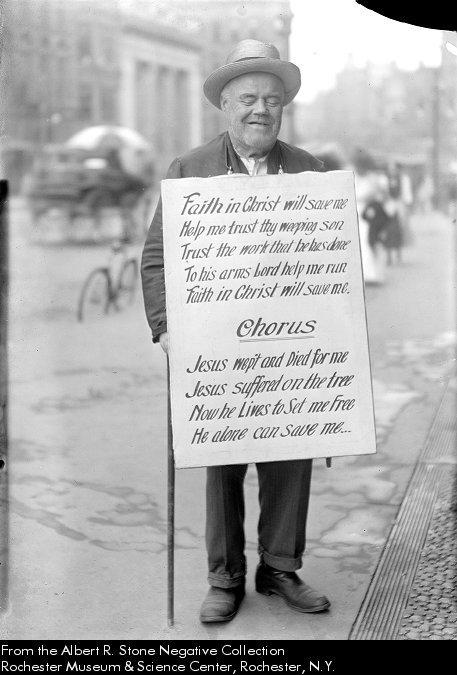 Faith in Christ will save me
Help me trust thy weeping son
Trust the work that he has done
To his arms Lord help me run
Faith in Christ will save me.
Chorus
Jesus wept and Died for me
Jesus suffered on the tree
Now he Lives to Set me Free
He alone can save me...
From the Albert R. Stone Negative Collection
Rochester Museum & Science Center, Rochester, N.Y.